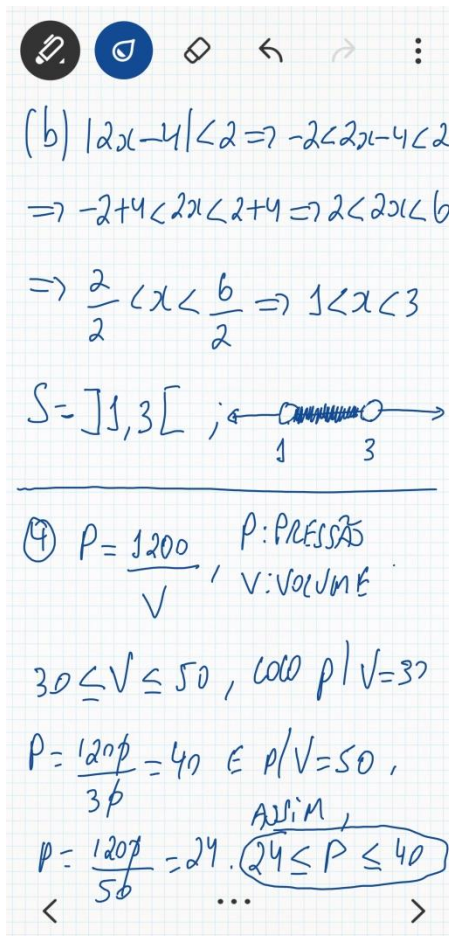 (b) |2x-4|<2 => -2<2x-4<2
=> -2+4<2x<2+4 => 2<2x<6
=> 2/2 <x< 6/2 => 1<x<3
S=]1,3[ ;
1 3
④ P= 1200/V , P:PRESSÃO
V:VOLUME
30≤V≤50, LOGO p/V=30
P= 1200/30 =40 E p/V=50,
ASSIM,
P= 1200/50 =24. 24≤P≤40